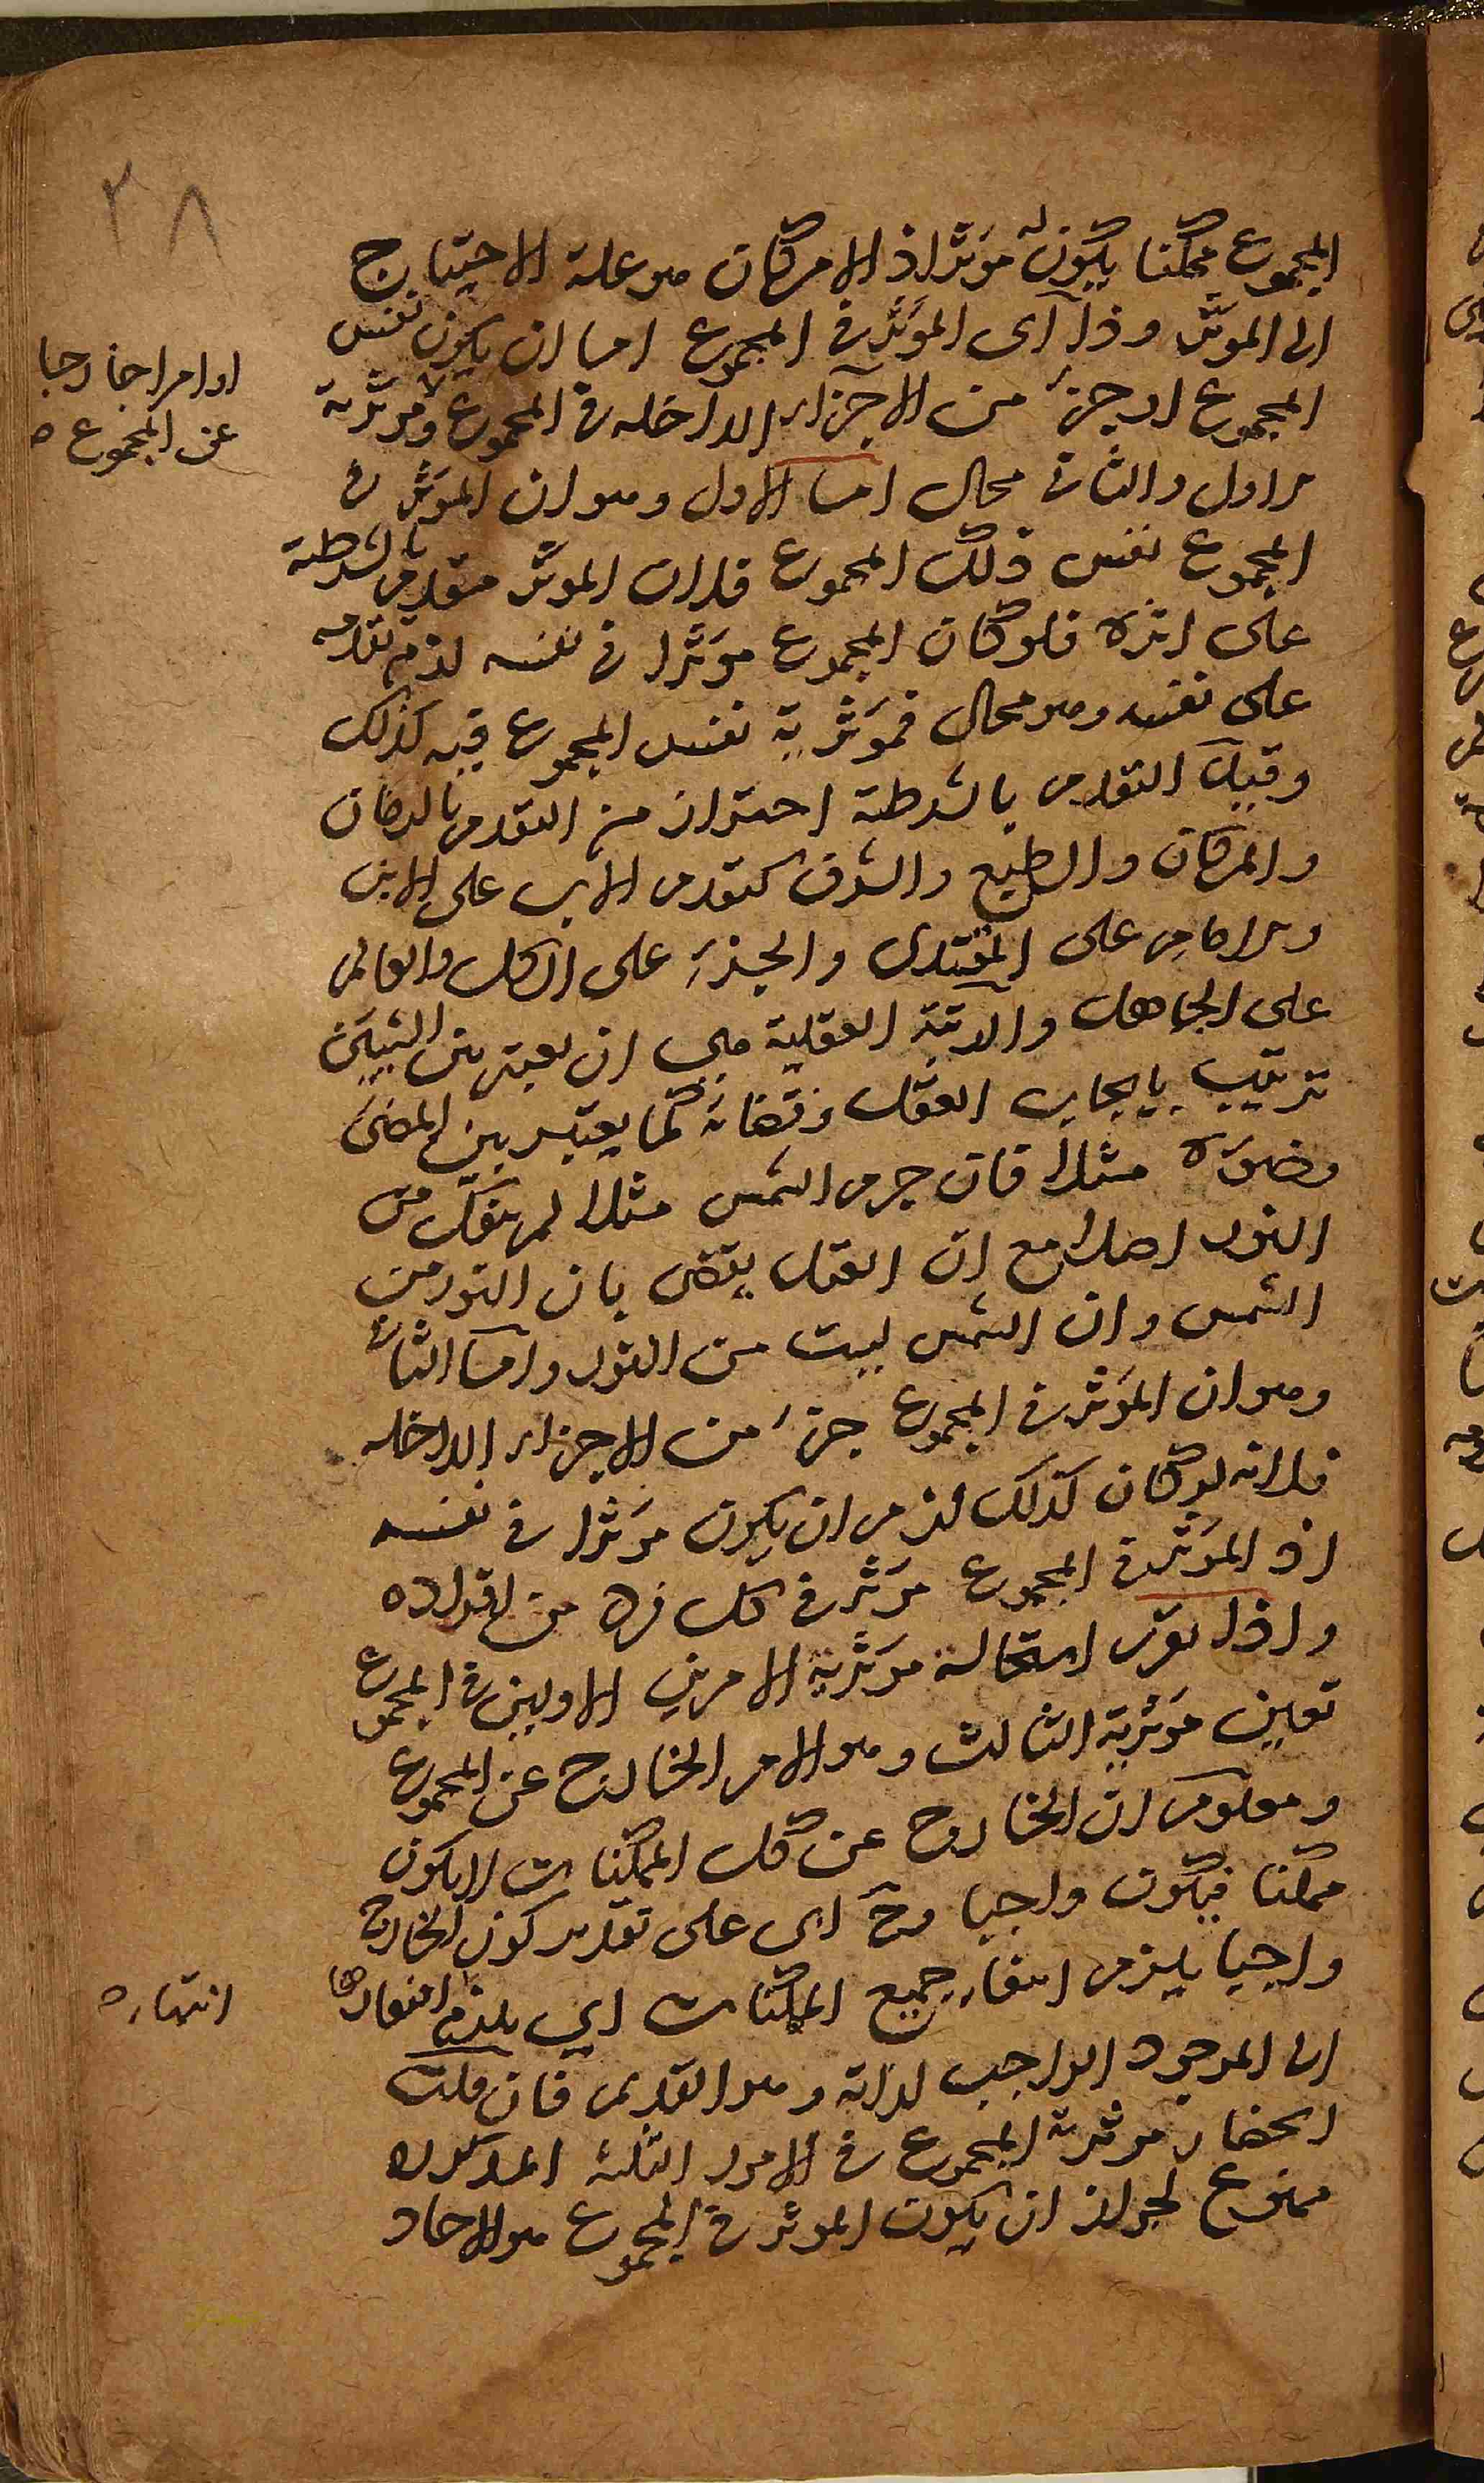 ٢٨
المجموع ممكنا يكون له مؤثرا اذ الامكان هو علة الاحتياج
الى المؤثر وذا اى المؤثر فى المجموع اما ان يكون نفس
المجموع او جزء من الاجزاء الداخله فى المجموع ومؤثرية
او امرا خارجا
عن المجموع ه
الاول والثانى محال اما الاول وهو ان المؤثر فى
المجموع نفس ذلك المجموع فلان المؤثر متقدم بالشرطية
على اثره فلو كان المجموع مؤثرا فى نفسه لزم تقدمه
على نفسه وهو محال فمؤثرية نفس المجموع فيه كذلك
وقيد التقدم بالشرطية احتراز من التقدم بالزمان
والمكان والطبع والشرف كتقدم الاب على الابن
والامام على المقتدى والجزء على الكل والعالم
على الجاهل والرتبة العقلية هى ان يعتبر بين الشيئين
ترتيب بايجاب العقل وقضائه كما يعتبر بين المضئ
وضوئه مثلا فان جرم الشمس مثلا لم ينفك من
النور اصلا مع ان العقل يقضى بان النور من
الشمس وان الشمس ليست من النور واما الثانى
وهو ان المؤثر فى المجموع جزء من الاجزاء الداخله
فلانه لو كان كذلك لزم ان يكون مؤثرا فى نفسه
اذ المؤثر فى المجموع مؤثر فى كل فرد من افراده
واذا تقرر استحالة مؤثرية الامرين الاولين فى المجموع
تعين مؤثرية الثالث وهو الامر الخارج عن المجموع
ومعلوم ان الخارج عن كل الممكنات لا يكون
ممكنا فيكون واجبا وح اى على تقدير كون الخارج
واجبا يلزم انتهاء جميع الممكنات اي يلزم
انتهاء
الى الموجود الواجب لذاته وهو القديم فان قلت
انحصار مؤثرية المجموع فى الامور الثلثه المذكوره
ممنوع لجواز ان يكون المؤثر فى المجموع هو الاحاد